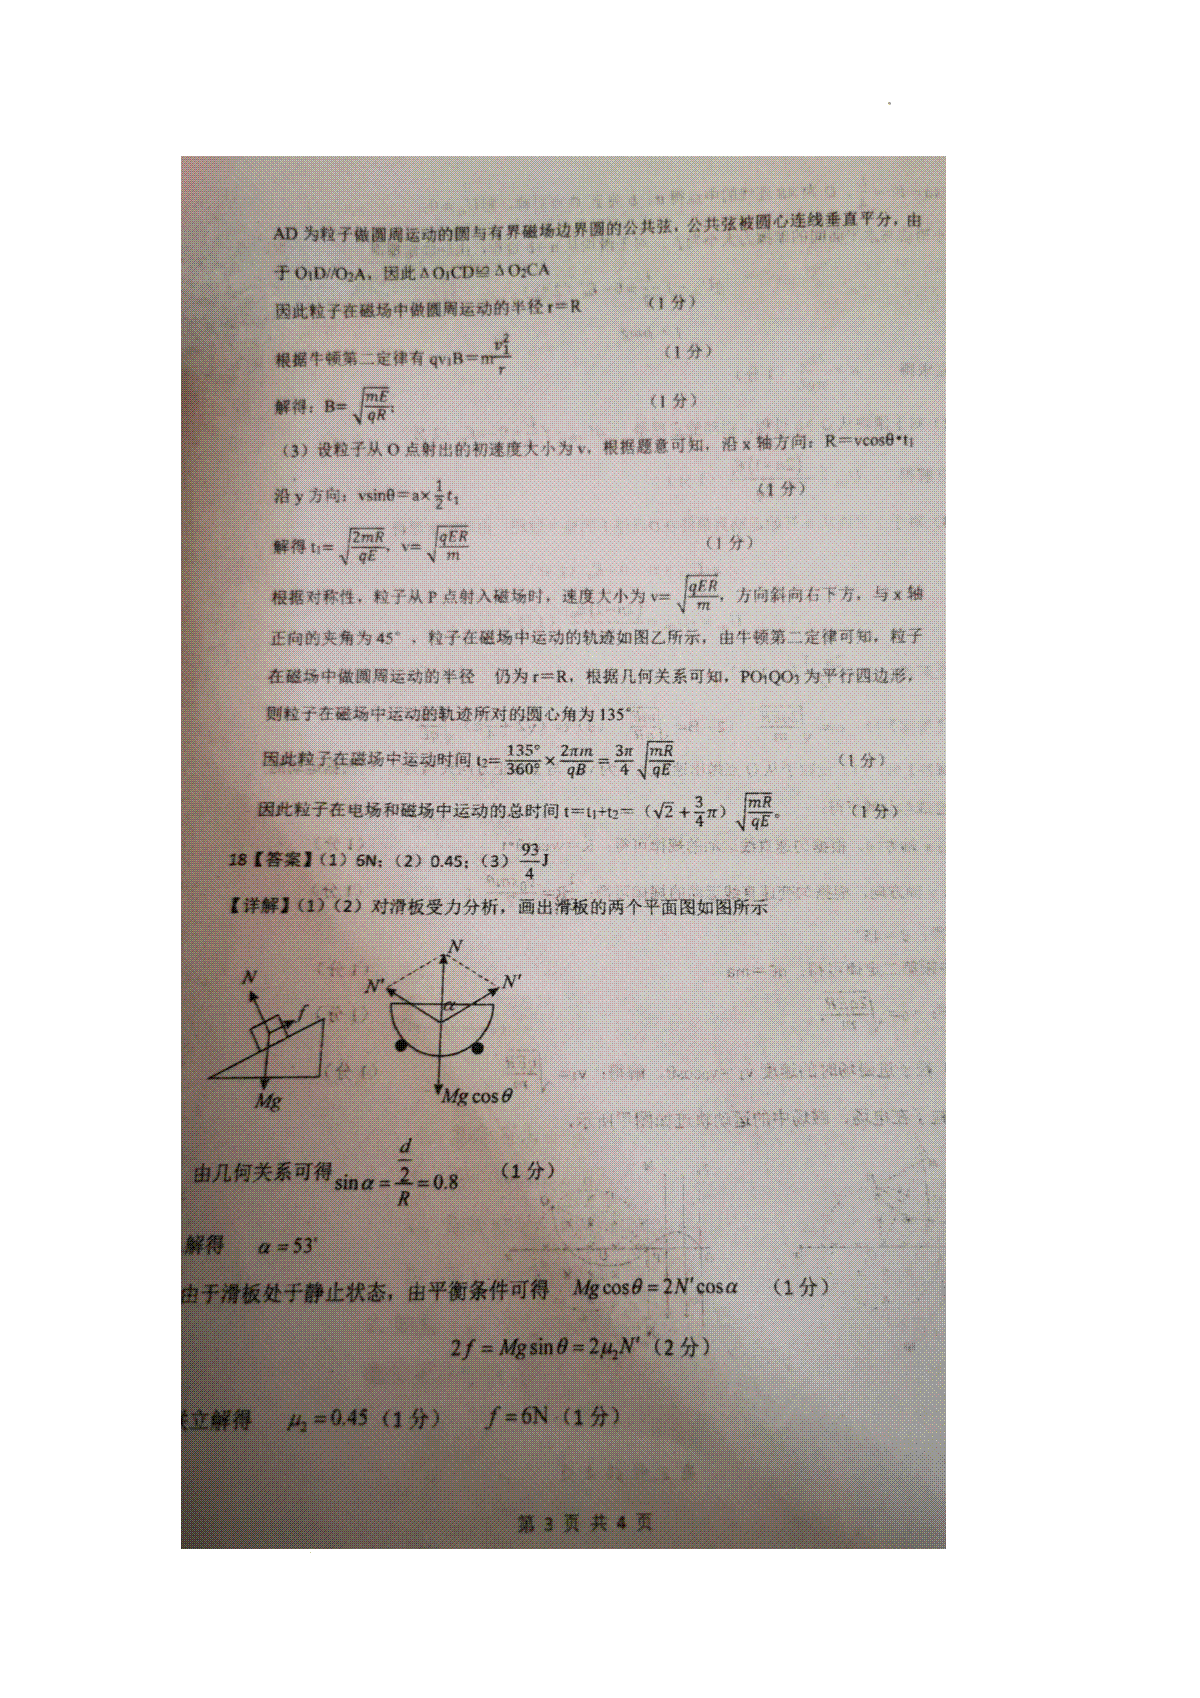 AD 为粒子做圆周运动的圆与有界磁场边界圆的公共弦，公共弦被圆心连线垂直平分，由
于 O₁D//O₂A，因此 Δ O₁CD≌ Δ O₂CA
因此粒子在磁场中做圆周运动的半径 r＝R （1 分）
根据牛顿第二定律有 qv₁B＝m v₁²/r （1 分）
解得：B= √(mE/qR)； （1 分）
（3）设粒子从 O 点射出的初速度大小为 v，根据题意可知，沿 x 轴方向：R＝vcosθ•t₁
沿 y 方向：vsinθ＝a× 1/2 t₁ （1 分）
解得 t₁= √(2mR/qE)，v= √(qER/m) （1 分）
根据对称性，粒子从 P 点射入磁场时，速度大小为 v= √(qER/m)，方向斜向右下方，与 x 轴
正向的夹角为 45°．粒子在磁场中运动的轨迹如图乙所示，由牛顿第二定律可知，粒子
在磁场中做圆周运动的半径 仍为 r＝R，根据几何关系可知，PO₁QO₃ 为平行四边形，
则粒子在磁场中运动的轨迹所对的圆心角为 135°
因此粒子在磁场中运动时间 t₂= 135°/360° × 2πm/qB = 3π/4 √(mR/qE) （1 分）
因此粒子在电场和磁场中运动的总时间 t＝t₁+t₂＝（√2 + 3/4 π）√(mR/qE)。 （1 分）
18【答案】（1）6N；（2）0.45；（3） 93/4 J
【详解】（1）（2）对滑板受力分析，画出滑板的两个平面图如图所示
N
N′ N′
N
f
α
Mg
Mg cos θ
由几何关系可得 sin α = (d/2)/R = 0.8 （1 分）
解得 α = 53°
由于滑板处于静止状态，由平衡条件可得 Mg cos θ = 2N′ cos α （1 分）
2f = Mg sin θ = 2μ₂N′ （2 分）
立解得 μ₂ = 0.45（1 分） f = 6N（1 分）
第 3 页 共 4 页